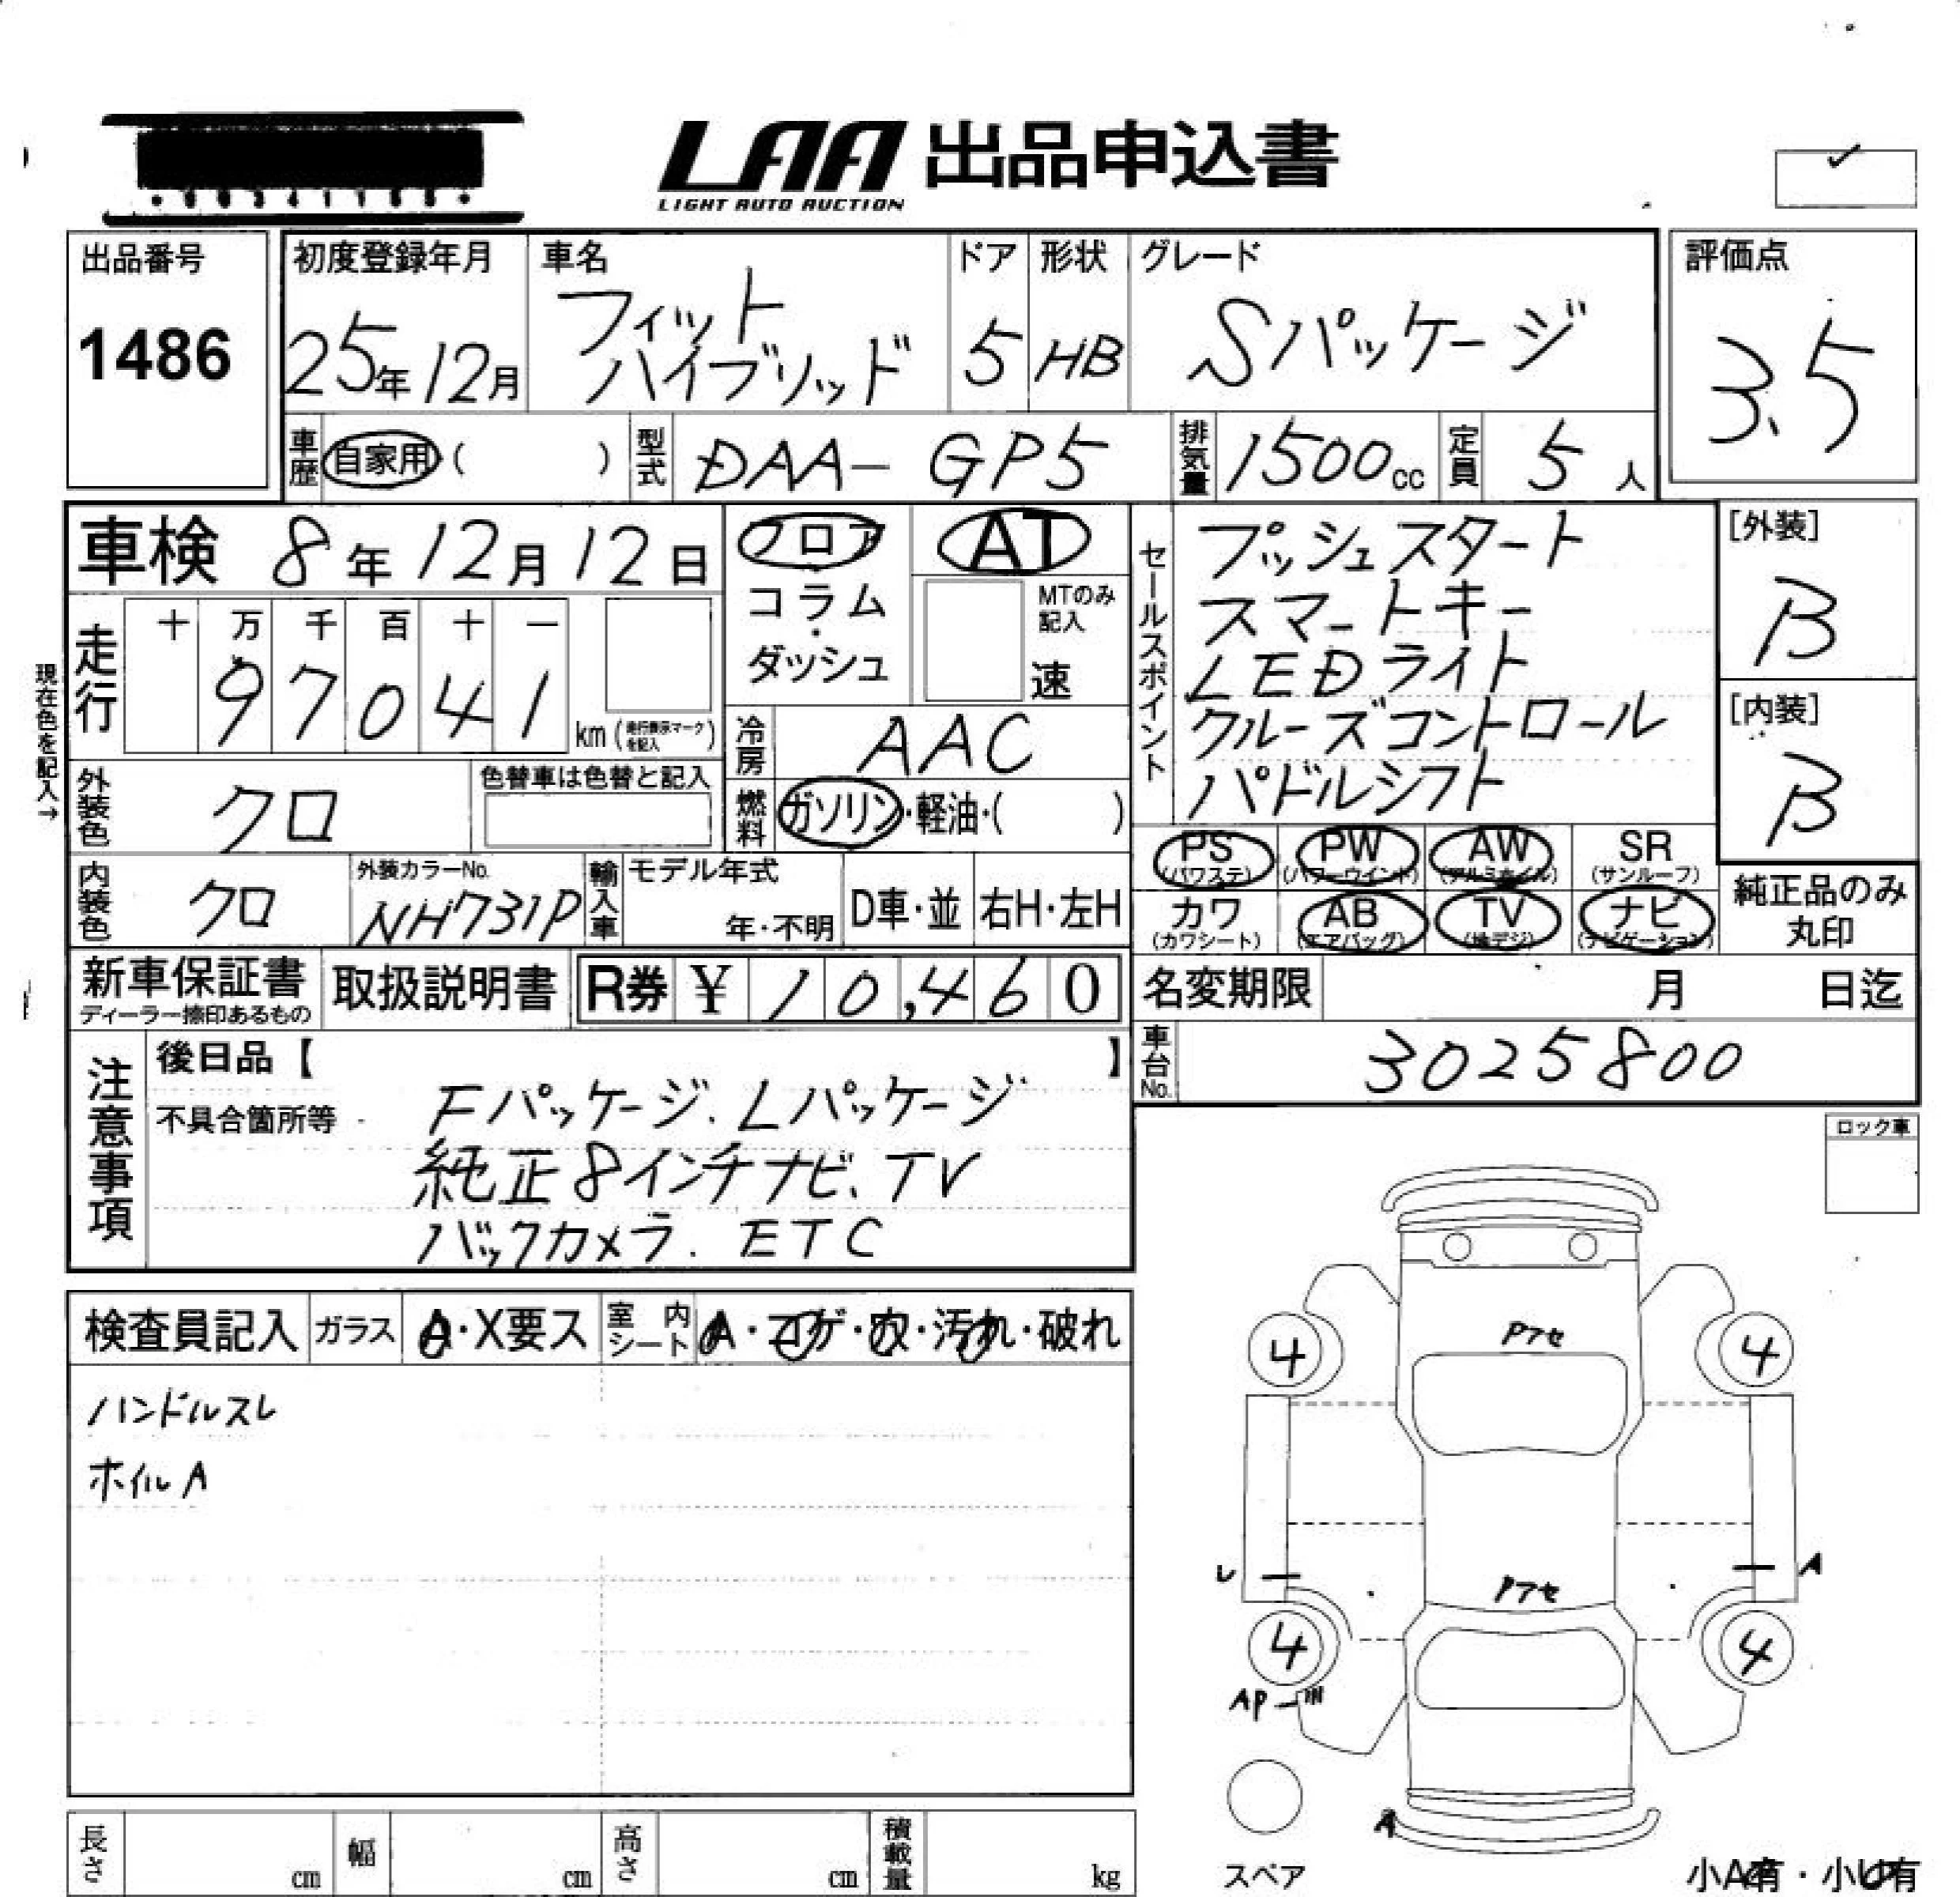 LAA 出品申込書
LIGHT AUTO AUCTION
出品番号
1486
初度登録年月
25年12月
車名
フィット
ハイブリッド
ドア
5
形状
HB
グレード
Sパッケージ
評価点
3.5
車歴 自家用 ( )
型式 DAA-GP5
排気量 1500cc
定員 5人
車検 8年12月12日
フロア
コラム
・
ダッシュ
AT
MTのみ
記入
速
セールスポイント
プッシュスタート
スマートキー
LEDライト
クルーズコントロール
パドルシフト
[外装]
B
[内装]
B
現在色を記入→
走行
十 万 千 百 十 一
9 7 0 4 1
km (走行表示マークを記入)
冷房 AAC
燃料 ガソリン・軽油・( )
外装色 クロ
色替車は色替と記入
内装色 クロ
外装カラーNo.
NH731P
輸入車
モデル年式
年・不明
D車・並
右H・左H
PS (パワステ)
PW (パワーウインド)
AW (アルミホイル)
SR (サンルーフ)
カワ (カワシート)
AB (エアバッグ)
TV (地デジ)
ナビ (ナビゲーション)
純正品のみ
丸印
新車保証書
ディーラー捺印あるもの
取扱説明書
R券 ¥ 10,460
名変期限 月 日迄
車台No. 3025800
注意事項
後日品【 】
不具合箇所等
Fパッケージ、Lパッケージ
純正8インチナビ、TV
バックカメラ、ETC
ロック車
検査員記入
ガラス A・X要ス
室内シート A・コゲ・穴・汚れ・破れ
ハンドルスレ
ホイルA
Pアセ
4 4
レ A
Pアセ
4 4
AP
A
スペア
小A有・小U有
長さ cm
幅 cm
高さ cm
積載量 kg